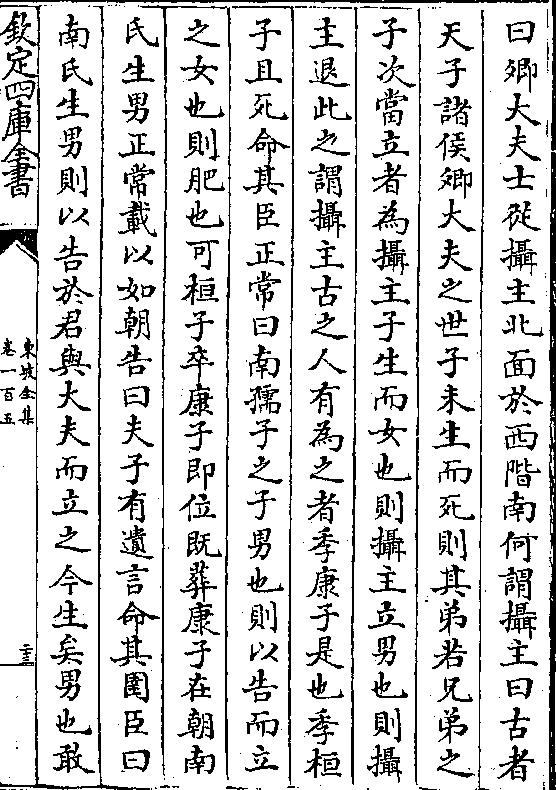 曰卿大夫士從攝主北面於西階南何謂攝主曰古者
天子諸侯卿大夫之世子未生而死則其弟若兄弟之
子次當立者為攝主子生而女也則攝主立男也則攝
主退此之謂攝主古之人有為之者季康子是也季桓
子且死命其臣正常曰南孺子之子男也則以告而立
之女也則肥也可桓子卒康子即位既葬康子在朝南
氏生男正常載以如朝告曰夫子有遺言命其圉臣曰
南氏生男則以告於君與大夫而立之今生矣男也敢
欽定四庫全書
東坡全集
卷一百五
二十三